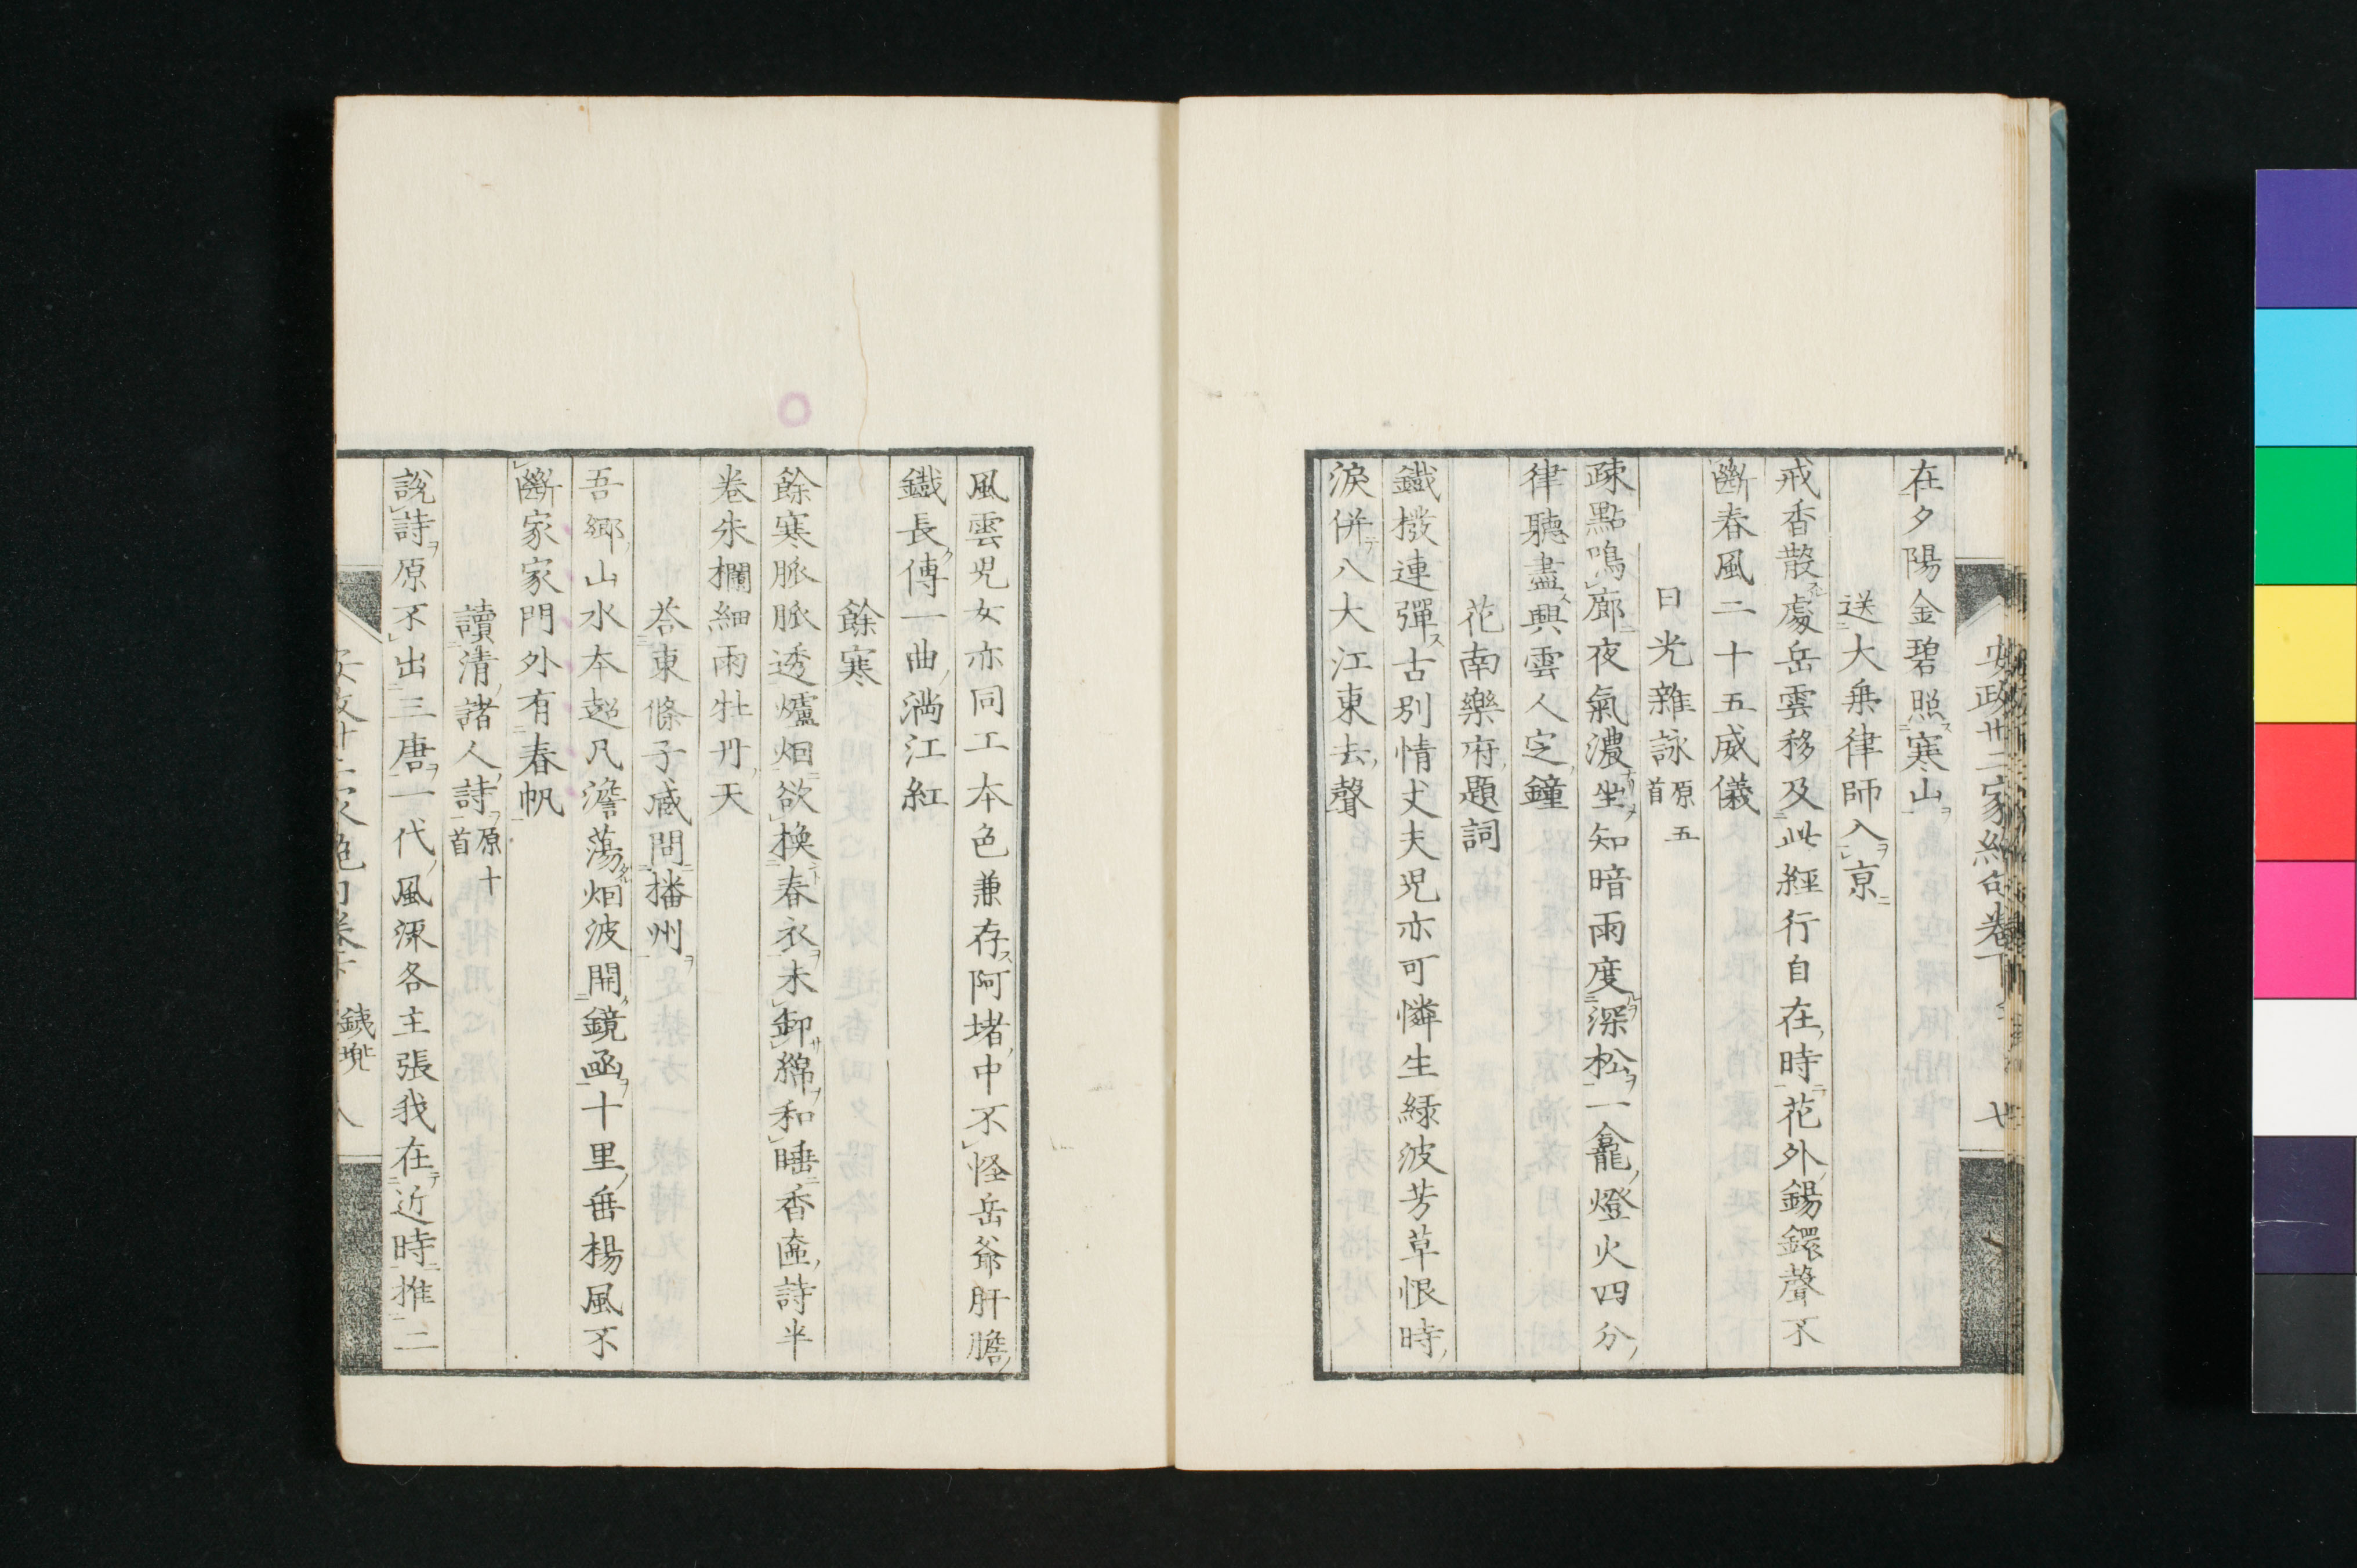 安政卅二家絶句卷下
在夕陽金碧照寒山
送大乗律師入京
戒香散處岳雲移及此經行自在時花外錫鐶聲不
斷春風二十五威儀
日光雜詠原五首
疎點鳴廊夜氣濃坐知暗雨度深松一龕燈火四分
律聽盡興雲人定鐘
花南樂府題詞
鐵撥連彈古別情丈夫児亦可憐生緑波芳草恨時
淚併八大江東去聲
風雲児女亦同工本色兼存阿堵中不怪岳爺肝膽
鐵長傳一曲満江紅
餘寒
餘寒脈脈透爐烟欲換春衣未卸綿和睡香奩詩半
卷朱欄細雨牡丹天
荅東條子威問播州
吾郷山水本超凡澹蕩烟波開鏡凾十里垂楊風不
斷家家門外有春帆
讀清諸人詩原十首
説詩原不出三唐一代風涙各主張我在近時推二
鐵兜 八